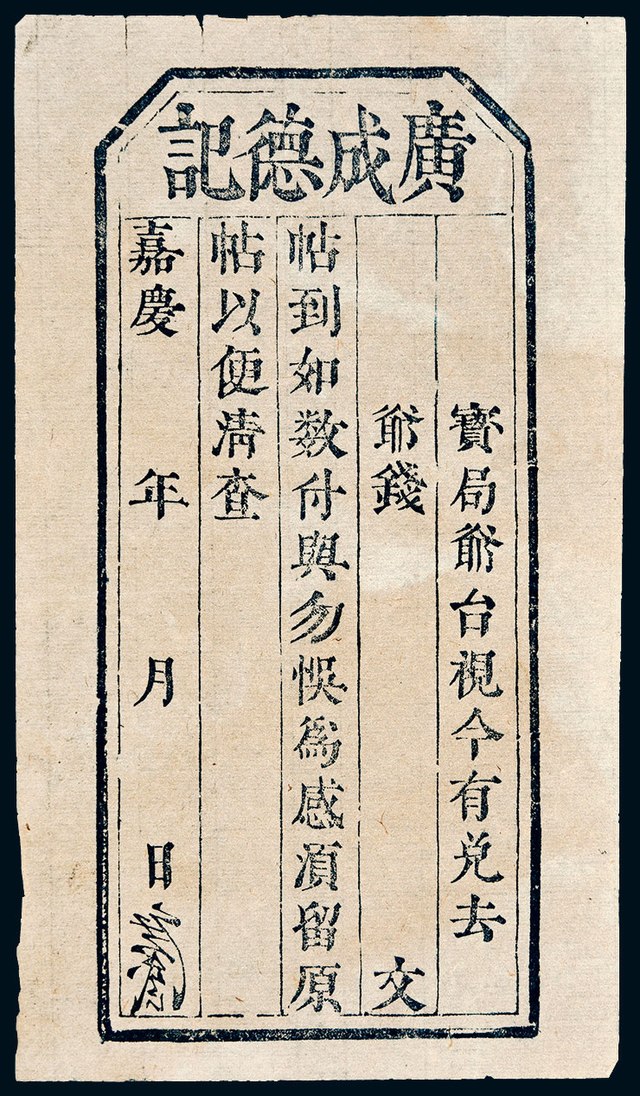 廣成德記
寳局爺台視今有兌去
爺錢 文
帖到如数付與勿悞爲感湏留原
帖以便清查
嘉慶 年 月 日